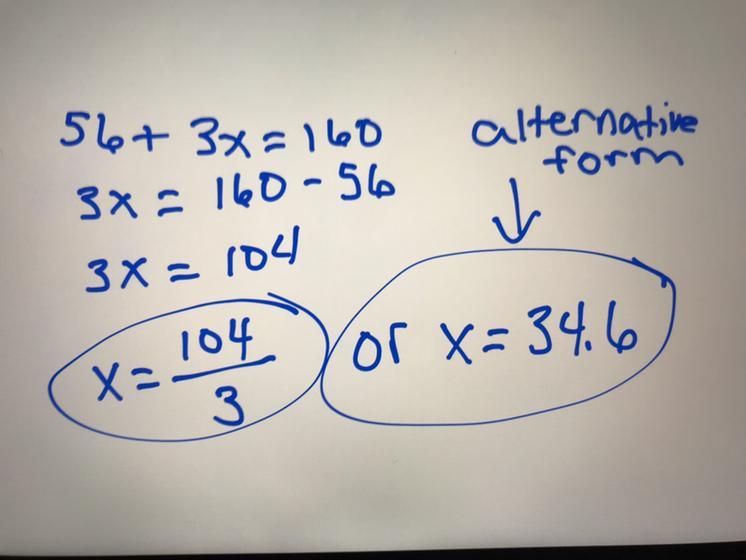 56 + 3x = 160
3x = 160 - 56
3x = 104
x = 104/3
alternative
form
or x = 34.6